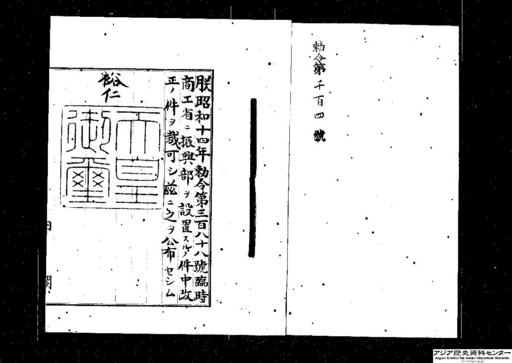 勅令第千百四號
朕昭和十四年勅令第三百八十八號臨時
商工省ニ振興部ヲ設置スルノ件中改
正ノ件ヲ裁可シ茲ニ之ヲ公布セシム
裕仁
天皇
御璽
内閣
アジア歴史資料センター
Japan Center for Asian Historical Records